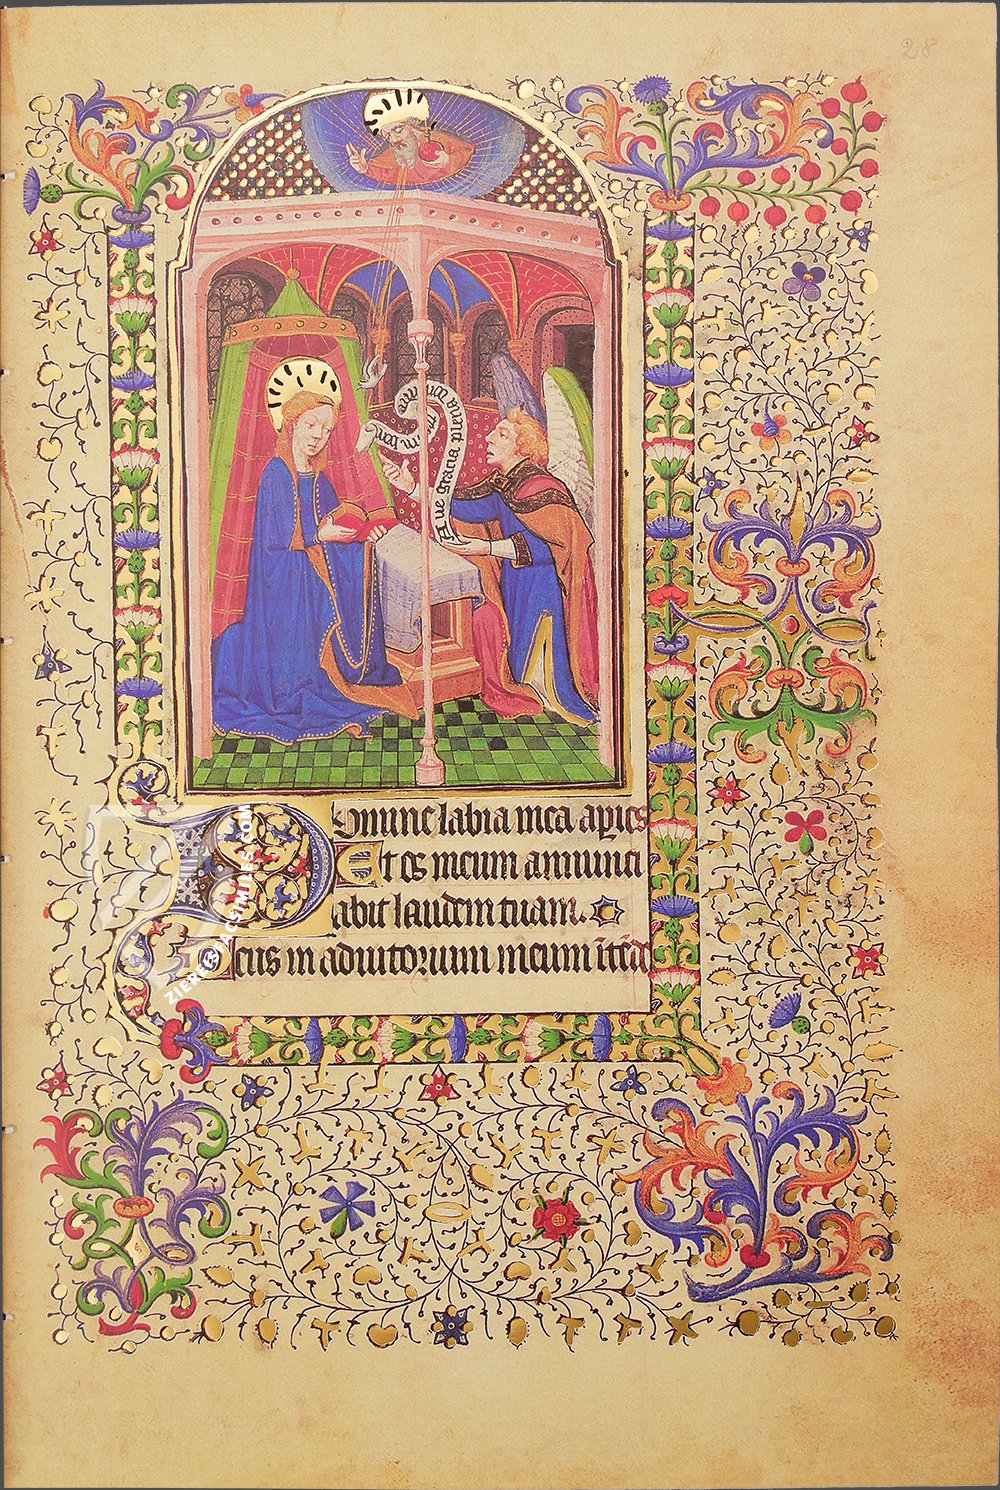 28
Aue gracia plena
Domine labia mea apries
Et os meum annunci
abit laudem tuam.
Deus in adiutorium meum ītēde
ZIEREIS FACSIMILES.COM